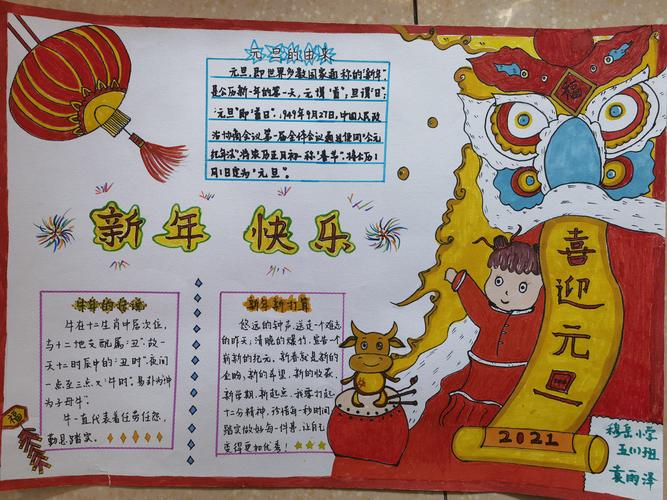 元旦的由来
元旦,即世界多数国家通称的“新年”
是公历新一年的第一天,元谓“首”,旦谓“日”;
“元旦”即“首日”.1949年9月27日,中国人民政
治协商会议第一届全体会议通过使用“公元
纪年法”,将农历正月初一称“春节”,将公历1
月1日定为“元旦”。
新年 快乐
牛年的传说
牛在十二生肖中居次位,
与十二地支配属“丑”,故一
天十二时辰中的“丑时”,夜间
一点至三点又“牛时”,易卦为坤
为子母牛”.
牛一直代表着任劳任怨,
勤恳踏实.
新年新打算
悠远的钟声,送走一个难忘
的昨天;清晚的爆竹,宣告一个
崭新的纪元,新春就是新的
企盼,新的希望,新的收获.
新年期,新起点,我要打起
十二分精神,珍惜每一秒时间,
踏实做好每一件事,让自己
变得更加优秀!
福
福
喜迎元旦
2021
穆岳小学
五(1)班
袁雨泽